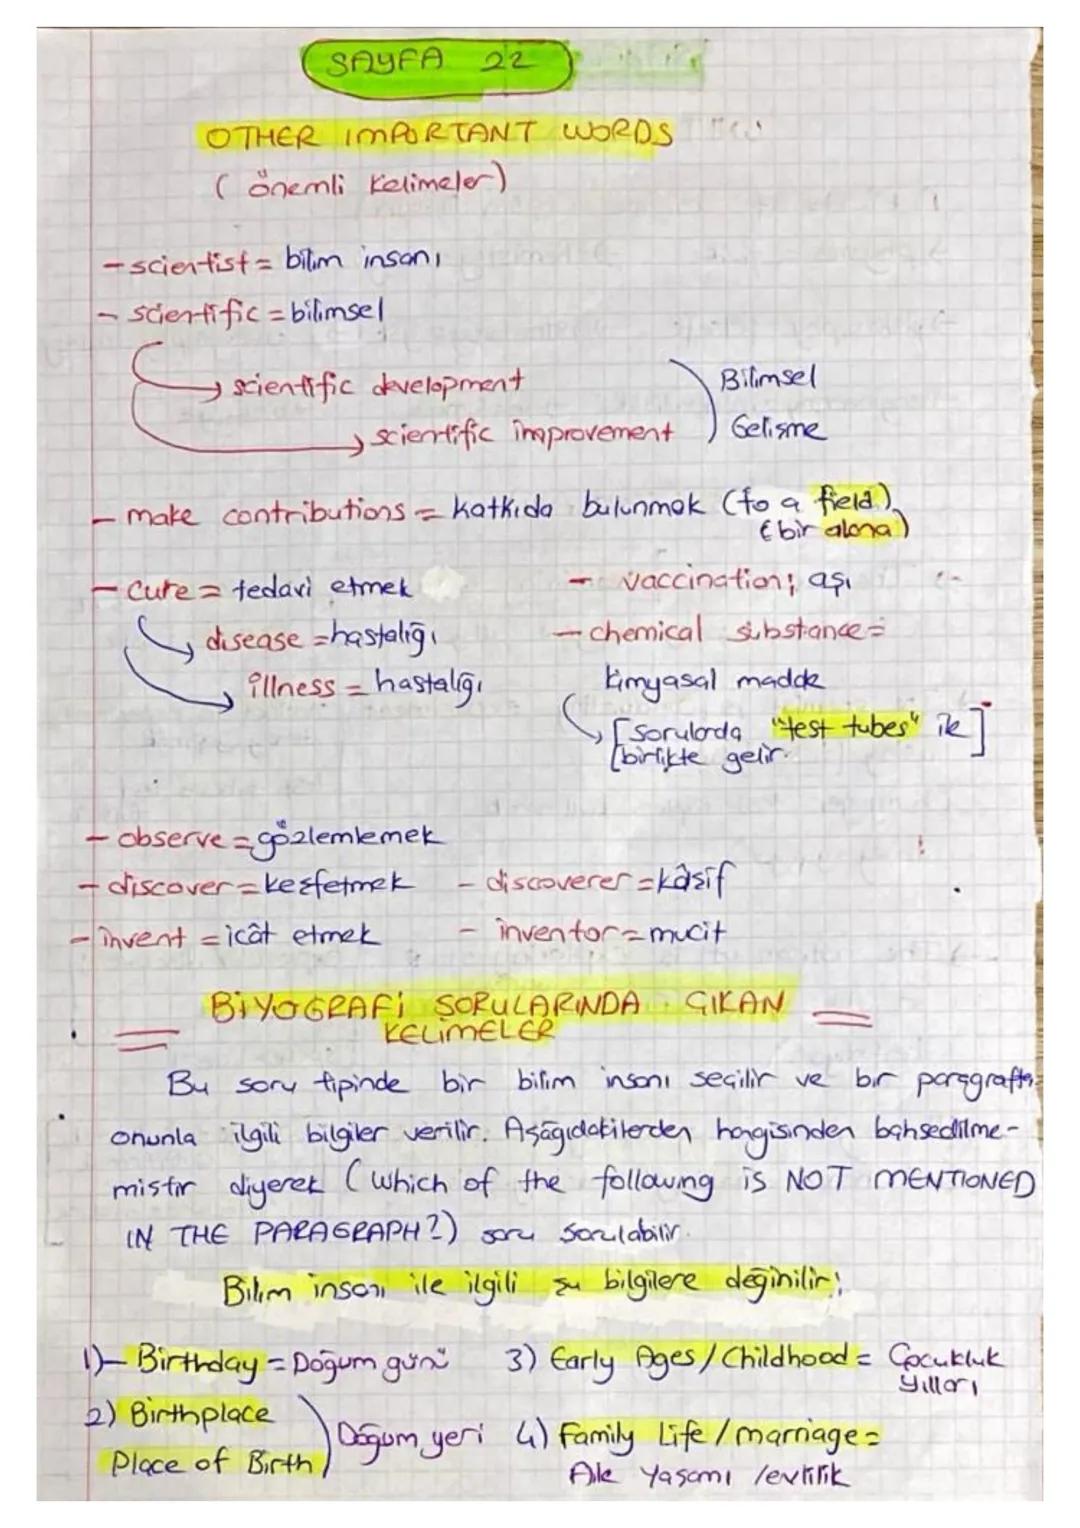 SAYFA 22
OTHER IMPORTANT WORDS
( önemli kelimeler)
- scientist = bilim insanı
- scientific = bilimsel
scientific development
scientific improvement
Bilimsel
Gelişme
- make contributions = katkıda bulunmak (to a field)
(bir alana)
- cure = tedavi etmek
disease = hastalığı
illness = hastalığı
- vaccination; aşı
- chemical substance =
kimyasal madde
[sorularda "test tubes" ile]
[birlikte gelir.
- observe = gözlemlemek
- discover = keşfetmek - discoverer = kâşif
- invent = icât etmek - inventor = mucit
BİYOGRAFİ SORULARINDA ÇIKAN
KELİMELER
Bu soru tipinde bir bilim insanı seçilir ve bir paragrafta
onunla ilgili bilgiler verilir. Aşağıdakilerden hangisinden bahsedilme-
miştir diyerek (which of the following is NOT MENTIONED
IN THE PARAGRAPH?) soru sorulabilir.
Bilim insanı ile ilgili şu bilgilere değinilir;
1)- Birthday = Doğum günü
2) Birthplace
Place of Birth
Doğum yeri
3) Early Ages / Childhood = Çocukluk
Yılları
4) Family Life / marriage =
Aile yaşamı / evlilik